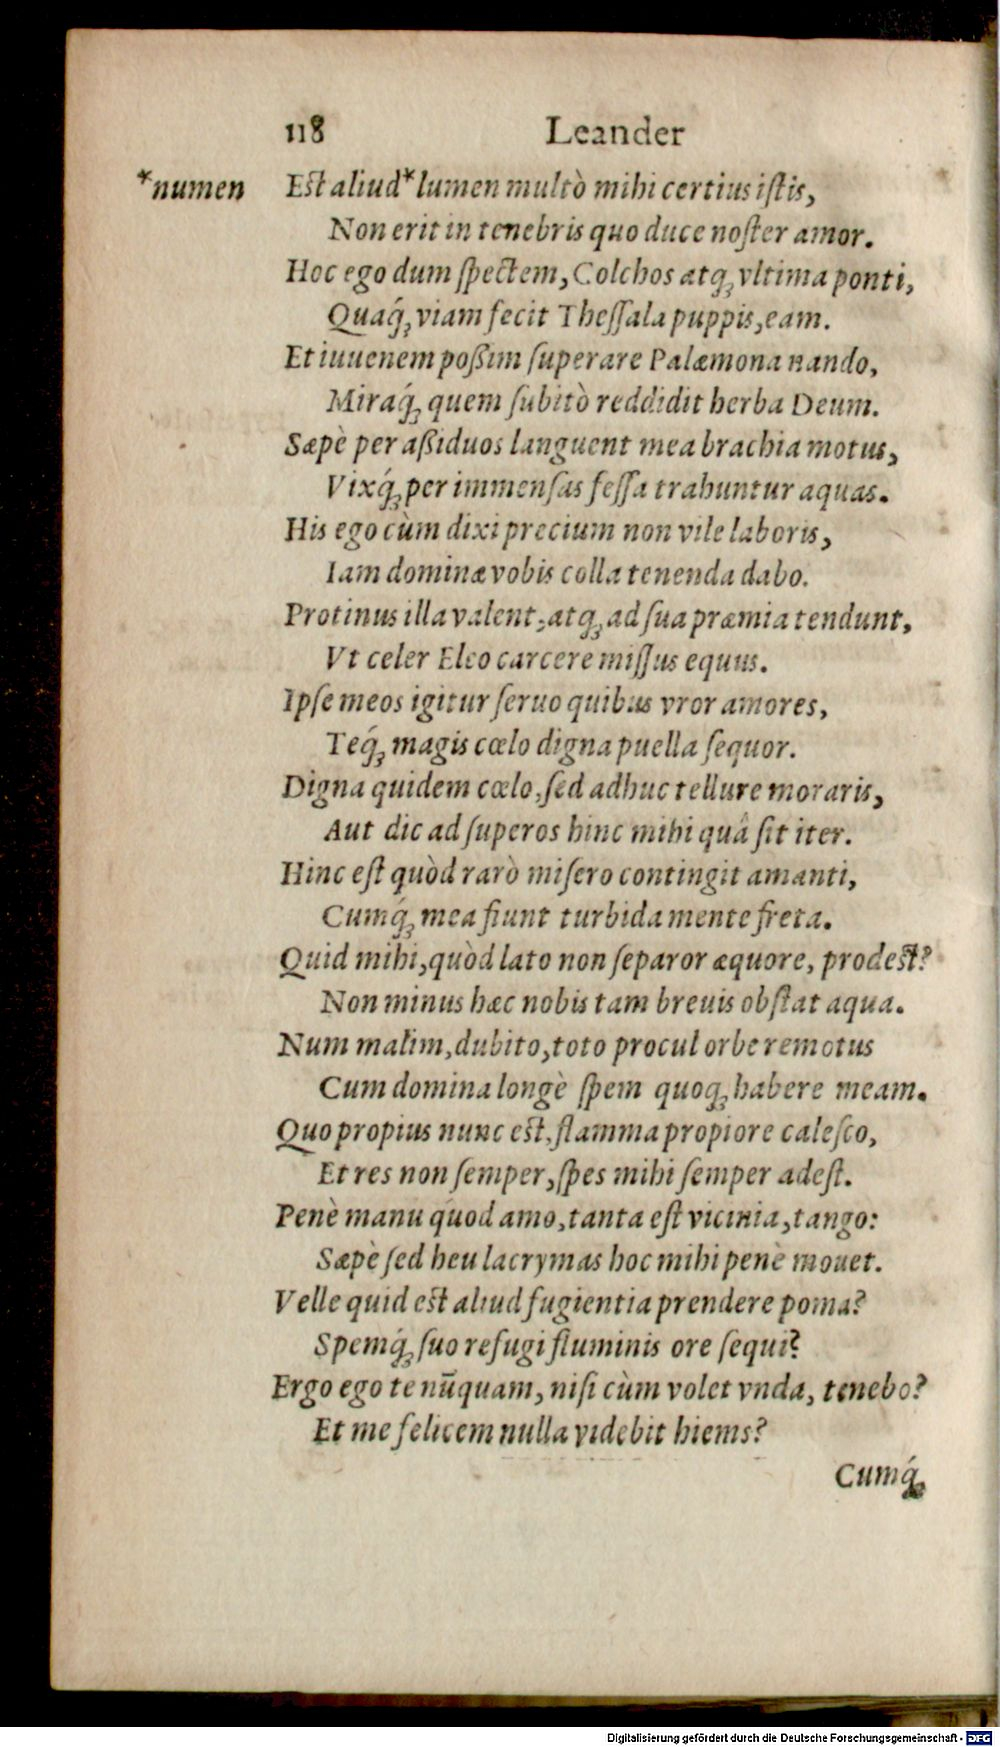 118 Leander
*numen Est aliud*lumen multò mihi certius iſtis,
Non erit in tenebris quo duce noſter amor.
Hoc ego dum ſpectem, Colchos atq́; vltima ponti,
Quaq́; viam fecit Theſſala puppis, eam.
Et iuuenem poßim ſuperare Palæmona nando,
Miraq́; quem ſubitò reddidit herba Deum.
Sæpè per aßiduos languent mea brachia motus,
Vixq́; per immenſas feſſa trahuntur aquas.
His ego cùm dixi precium non vile laboris,
Iam dominæ vobis colla tenenda dabo.
Protinus illa valent, atq; ad ſua præmia tendunt,
Vt celer Eleo carcere miſſus equus.
Ipſe meos igitur ſeruo quibus vror amores,
Teq́; magis cœlo digna puella ſequor.
Digna quidem cœlo, ſed adhuc tellure moraris,
Aut dic ad ſuperos hinc mihi quâ ſit iter.
Hinc eſt quòd rarò miſero contingit amanti,
Cumq́; mea fiunt turbida mente freta.
Quid mihi, quòd lato non ſeparor æquore, prodeſt?
Non minus hæc nobis tam breuis obſtat aqua.
Num malim, dubito, toto procul orbe remotus
Cum domina longè ſpem quoq; habere meam.
Quo propius nunc eſt, flamma propiore caleſco,
Et res non ſemper, ſpes mihi ſemper adeſt.
Penè manu quod amo, tanta eſt vicinia, tango:
Sæpè ſed heu lacrymas hoc mihi penè mouet.
Velle quid eſt aliud fugientia prendere poma?
Spemq́; ſuo refugi fluminis ore ſequi?
Ergo ego te nūquam, niſi cùm volet vnda, tenebo?
Et me felicem nulla videbit hiems?
Cumq́;
Digitalisierung gefördert durch die Deutsche Forschungsgemeinschaft - DFG